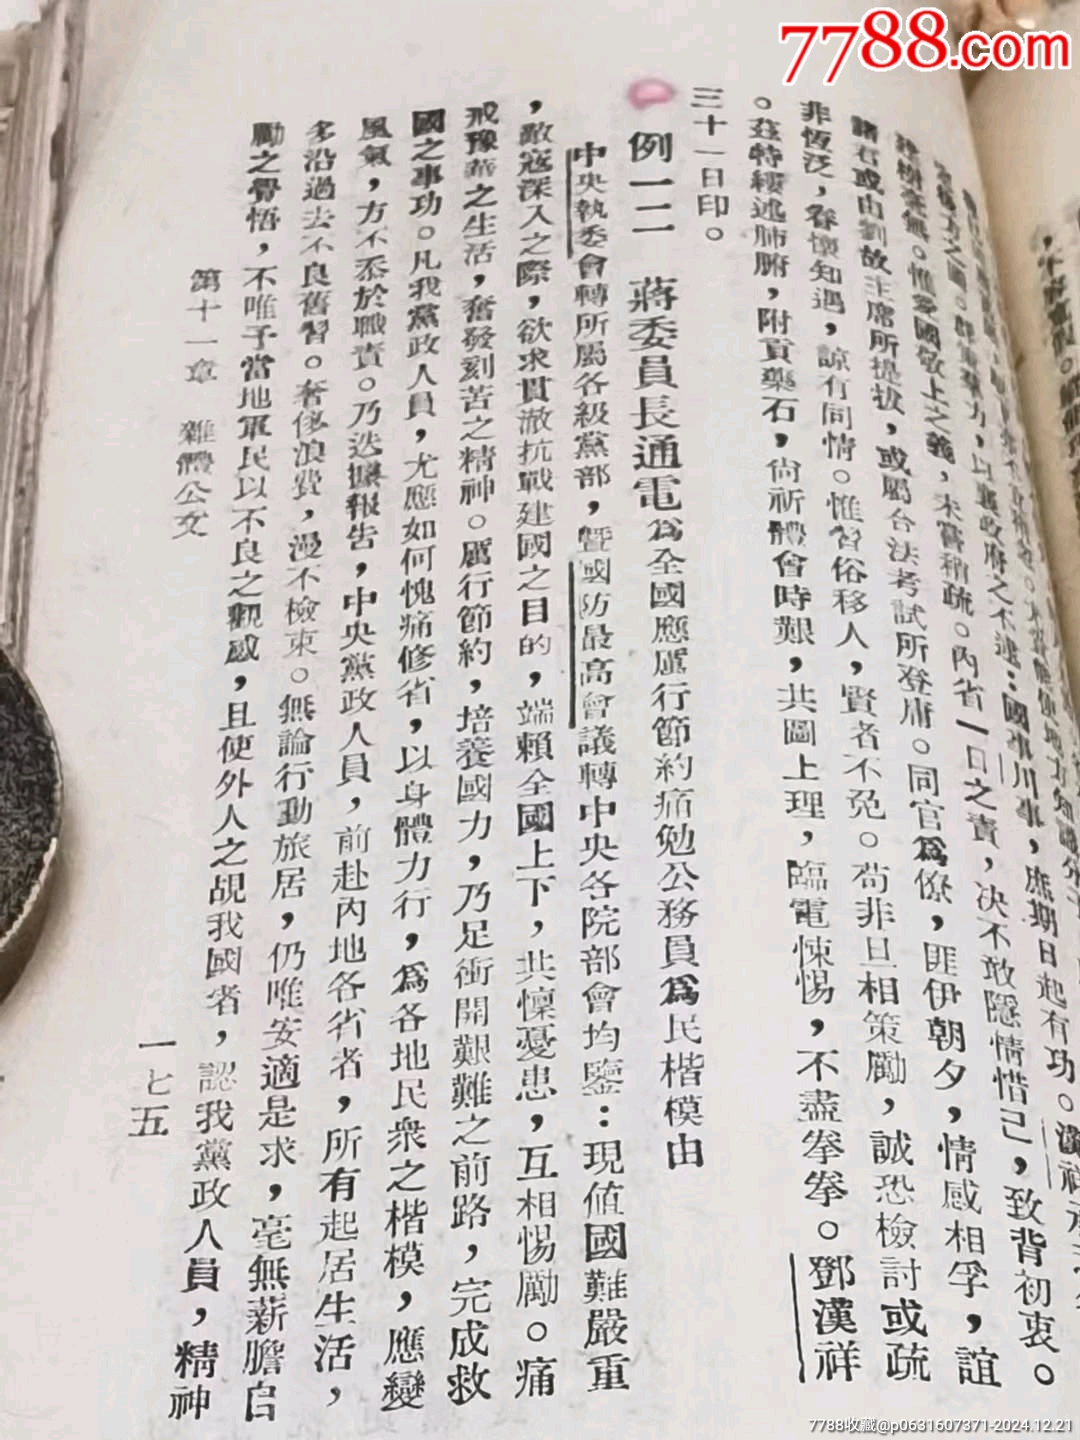 7788.com
庶期日起有功。漢祥
國事川事,
決不敢隱情惜己,致背初衷。
惟愛國敬上之義,未嘗稍疏。內省一日之責,
諸君或由劉故主席所提拔,或屬合法考試所登庸。同官為僚,匪伊朝夕,情感相孚,誼
非恆泛,眷懷知遇,諒有同情。惟習俗移人,賢者不免。苟非旦相策勵,誠恐檢討或疏
。茲特縷述肺腑,附貢藥石,尚祈體會時艱,共圖上理,臨電悚惕,不盡拳拳。鄧漢祥
三十一日印。
例一二 蔣委員長通電為全國應厲行節約痛勉公務員為民楷模由
中央執委會轉所屬各級黨部,暨國防最高會議轉中央各院部會均鑒:現值國難嚴重
,敵寇深入之際,欲求貫澈抗戰建國之目的,端賴全國上下,共懍憂患,互相惕勵。痛
戒豫華之生活,奮發刻苦之精神。厲行節約,培養國力,乃足衝開艱難之前路,完成救
國之事功。凡我黨政人員,尤應如何愧痛修省,以身體力行,為各地民衆之楷模,應變
風氣,方不忝於職責。乃迭據報告,中央黨政人員,前赴內地各省者,所有起居生活,
多沿過去不良舊習。奢侈浪費,漫不檢束。無論行動旅居,仍唯安適是求,毫無薪膽自
勵之覺悟,不唯予當地軍民以不良之觀感,且使外人之覘我國者,認我黨政人員,精神
第十一章 雜體公文
一七五
7788收藏@p0631607371-2024.12.21